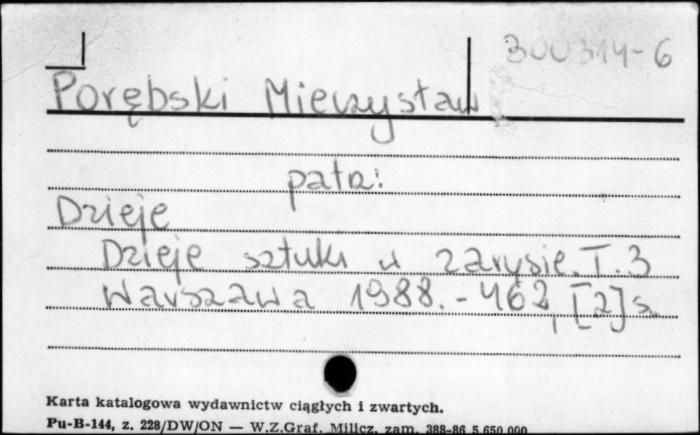 300314-6
Porębski Mieczysław
patrz:
Dzieje
Dzieje sztuki w zarysie. T. 3
Warszawa 1988. - 462, [2] s.
Karta katalogowa wydawnictw ciągłych i zwartych.
Pu-B-144, z. 228/DW/ON — W.Z.Graf. Milicz, zam. 388-86 5.650.000